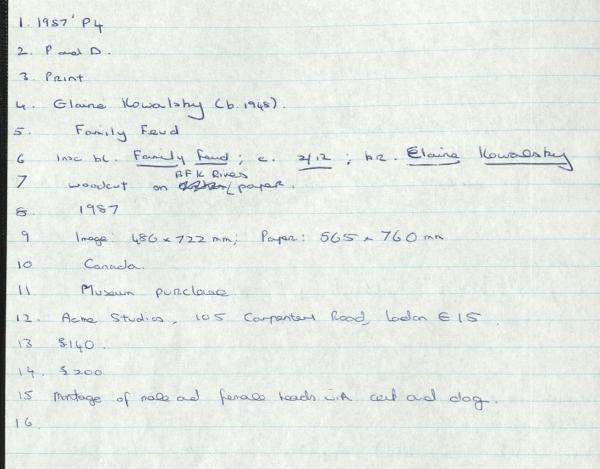 1. 1987' P4
2. P and D.
3 Print
4. Elaine Kowalsky (b. 1948).
5. Family Feud
6 Insc bl. Family Feud; c. 2/12; br. Elaine Kowalsky
BFK Rives
7 woodcut on / paper.
8. 1987
9 Image: 486 x 722 mm; Paper: 565 x 760 mm
10 Canada.
11 Museum purchase
12. Acme Studios, 105 Carpenters Road, London E15
13 $140.
14. $200
15 Montage of male and female heads with cat and dog.
16